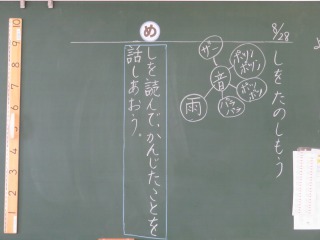 8/28
しをたのしもう
音
ザー
ポツリ
ポツリ
ポツ
ポツ
パラ
パラ
雨
め
しを読んで、かんじたことを
話しあおう。
10
9
8
7
6
5
4
3
2
1